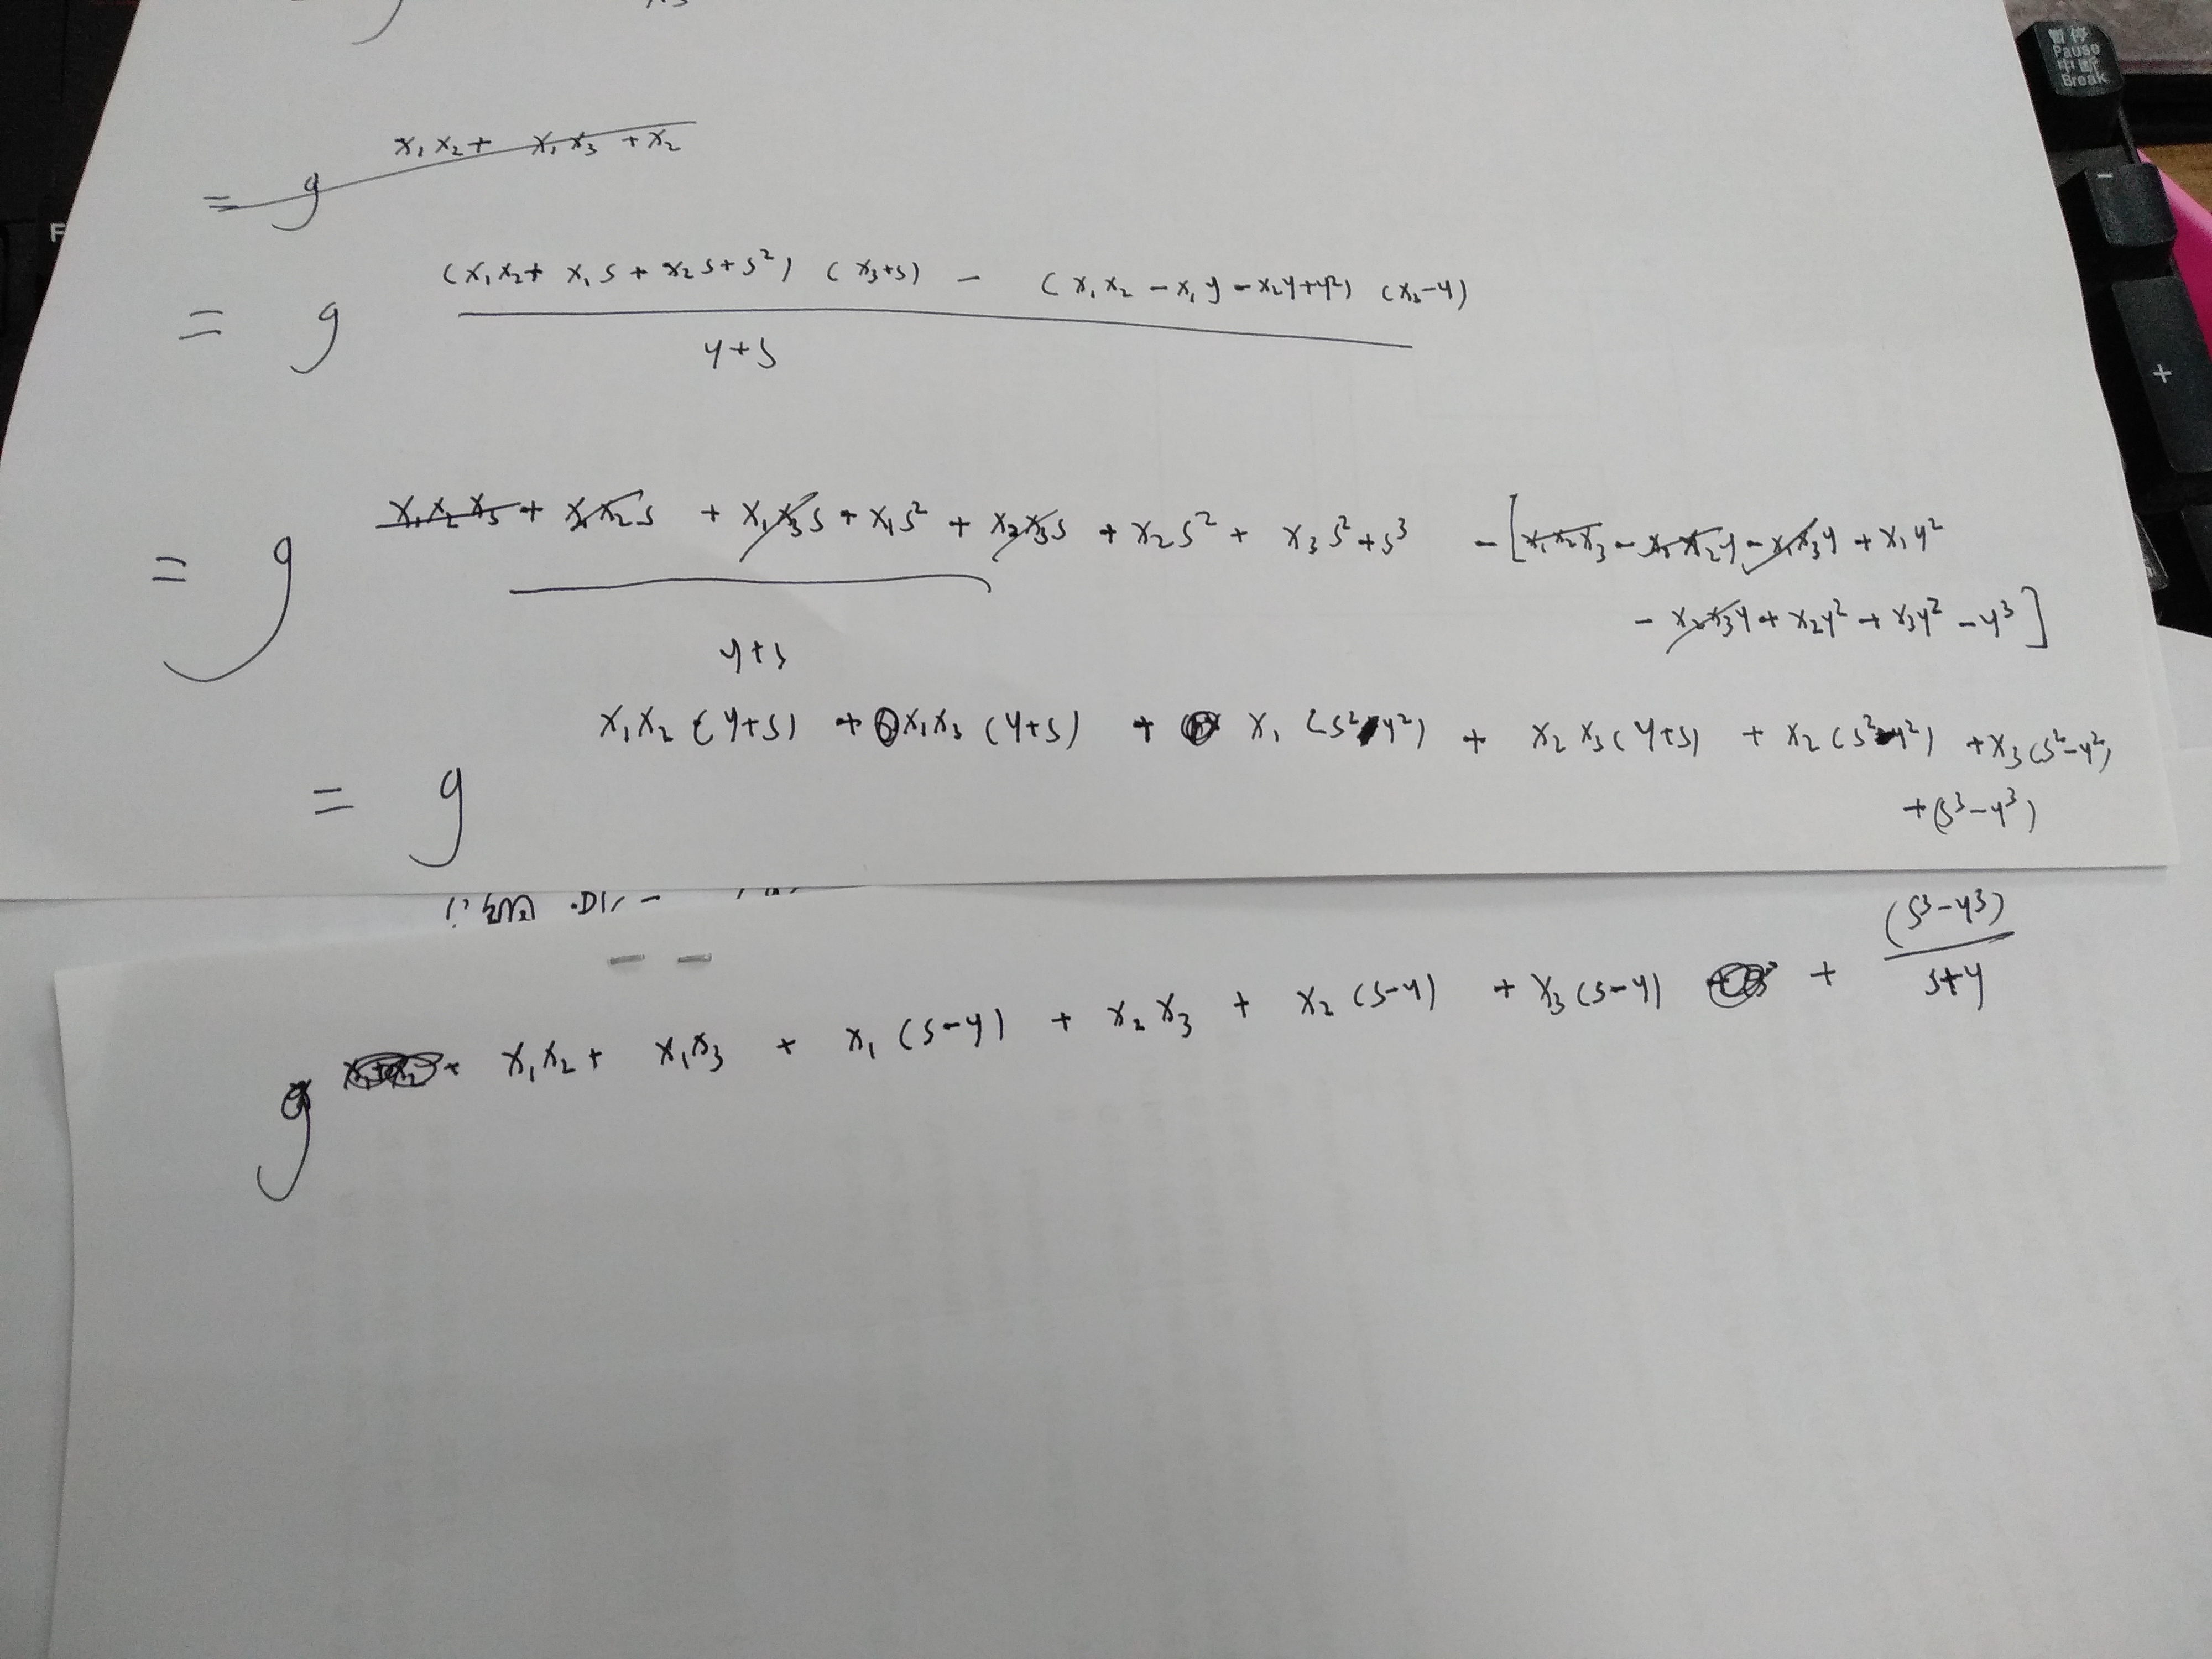 暂停
Pause
中断
Break
-
+
F
= g x₁x₂ + x₁x₃ + x₂
= g (x₁x₂ + x₁s + x₂s + s²) (x₃+s) - (x₁x₂ - x₁y - x₂y + y²) (x₃-y)
y+s
= g x₁x₂x₃ + x₁x₂s + x₁x₃s + x₁s² + x₂x₃s + x₂s² + x₃s² + s³ - [x₁x₂x₃ - x₁x₂y - x₁x₃y + x₁y²
- x₂x₃y + x₂y² + x₃y² - y³]
y+s
= g x₁x₂(y+s) + x₁x₃(y+s) + x₁(s²-y²) + x₂x₃(y+s) + x₂(s²-y²) + x₃(s²-y²)
+(s³-y³)
g x₁x₂ + x₁x₃ + x₁(s-y) + x₂x₃ + x₂(s-y) + x₃(s-y) + (s³-y³)
s+y